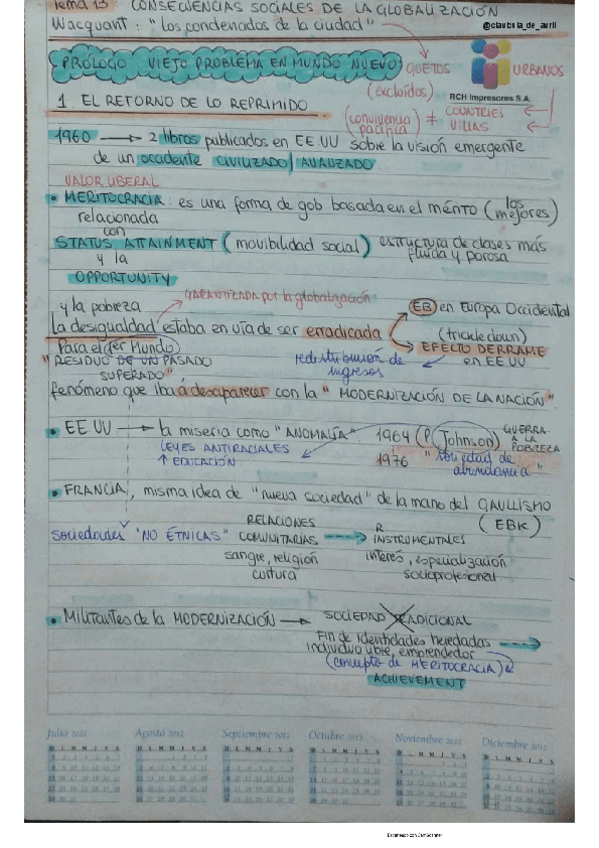 Tema 13: CONSECUENCIAS SOCIALES DE LA GLOBALIZACIÓN
Wacquant: "Los condenados de la ciudad"
PRÓLOGO VIEJO PROBLEMA EN MUNDO NUEVO
GUETOS URBANOS
(excluidos)
RCH Impresores S.A.
1. EL RETORNO DE LO REPRIMIDO
(convivencia pacífica) ≠ COUNTRIES
VILLAS
1960 → 2 libros publicados en EE.UU sobre la visión emergente
de un occidente CIVILIZADO/AVANZADO
VALOR LIBERAL
• MERITOCRACIA: es una forma de gob basada en el mérito (los mejores)
relacionada
con
STATUS ATTAINMENT (movibilidad social) estructura de clases más
fluida y porosa
y la
OPPORTUNITY
GARANTIZADA por la globalización
y la pobreza
EB en Europa Occidental
La desigualdad estaba en vía de ser erradicada
(trickle down)
Para el (1er Mundo)
EFECTO DERRAME
en EE UU
"RESIDUO DE UN PASADO
SUPERADO"
redistribución de
ingresos
fenómeno que iba á desaparecer con la "MODERNIZACIÓN DE LA NACIÓN".
• EE.UU → la miseria como "ANOMALÍA" 1964 (P. Johnson) GUERRA
A LA
POBREZA
LEYES ANTIRACIALES
↑ EDUCACIÓN
1976 "Sociedad de
abundancia"
• FRANCIA, misma idea de "nueva sociedad" de la mano del GAULLISMO
(EBK)
sociedades "NO ÉTNICAS"
RELACIONES
COMUNITARIAS → R INSTRUMENTALES
sangre, religión
cultura
interés, especialización
socioprofesional
• Militantes de la MODERNIZACIÓN → SOCIEDAD TRADICIONAL
Fin de identidades heredadas
individuo libre, emprendedor
(concepto de MERITOCRACIA)
ACHIEVEMENT
Julio 2012 Agosto 2012 Septiembre 2012 Octubre 2012 Noviembre 2012 Diciembre 2012